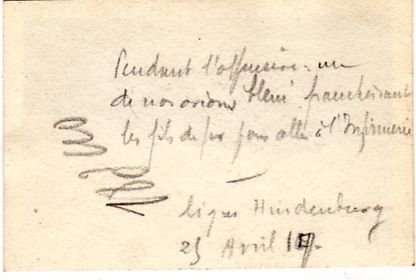 Pendant l'offensive - un
de nos avions blessé franchissant
les fils de fer pour aller à l'Infirmerie
ligne Hindenburg
25 Avril 17